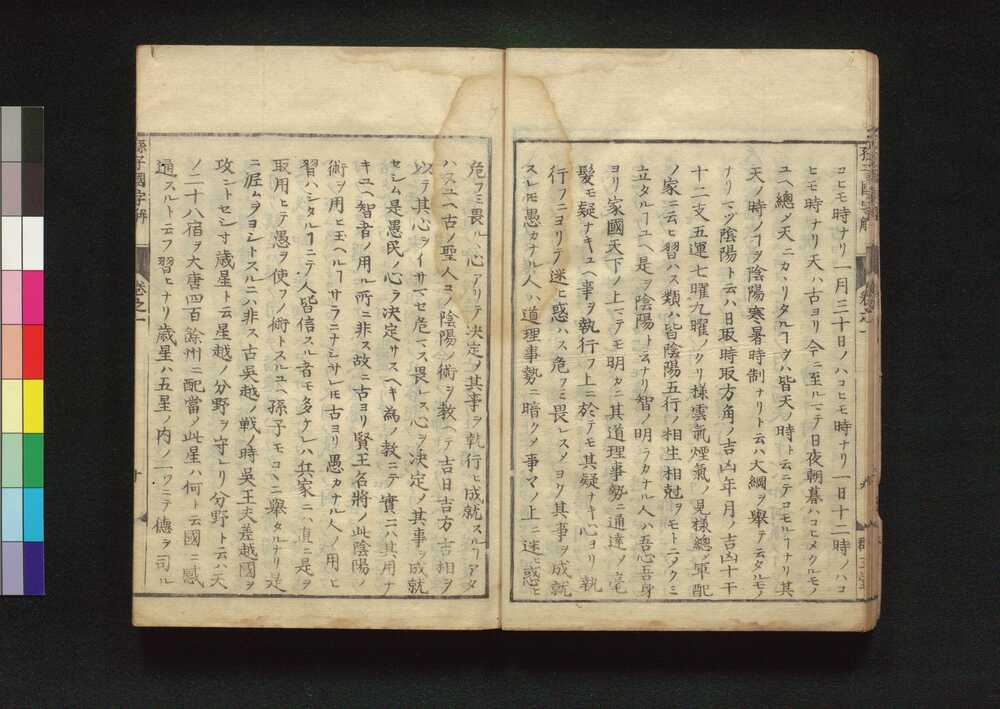 コヒモ時ナリ一月三十日ノハコヒモ時ナリ一日十二時ノハコ
ヒモ時ナリ天ハ古ヨリ今ニ至ルマテ日夜朝暮ハコヒメクルモノ
ユヘ總メ天ニカヽリタルヿヲハ皆天ノ時ト云ニテコモルヿナリ其
天ノ時ノヿヲ陰陽寒暑時制ナリト云ハ大綱ヲ舉テ云タルモノ
ナリマツ陰陽ト云ハ日取時取方角ノ吉凶年月ノ吉凶十干
十二支五運七曜九曜ノクリ樣雲氣煙氣ノ見樣總メ軍配
ノ家ニ云ヒ習ハス類ハ皆陰陽五行ノ相生相尅ヲモトニメクミ
立タルヿユヘ是ヲ陰陽ト云ナリ智ノ明ラカナル人ハ吾心吾身
ヨリ家國天下ノ上マテモ明カニ其道理事勢ニ通達メ毫
髮モ疑ナキユヘ事ヲ執行フ上ニ於テモ其疑ナキ心ヨリ執
行フニヨリテ迷ヒ惑ハス危フミ畏レスメヨク其事ヲ成就
スレモ愚カナル人ハ道理事勢ニ暗クメ事マノ上ニ迷ヒ惑ヒ
卷之一
九
孫子國字解
卷之一
十
危フミ畏ルヽ心アリテ決定メ其事ヲ執行ヒ成就スルヿアタ
ハスユヘ古ノ聖人コノ陰陽ノ術ヲ教ヘテ吉日吉方吉相ヲ
以テ其心ヲイサマセ危マス畏レス心ヲ決定メ其事ヲ成就
セシム是愚民ノ心ヲ決定サスヘキ為ノ教ニテ實ニハ其用ナ
キユヘ智者ノ用ル所ニ非ス故ニ古ヨリ賢王名將ノ此陰陽
術ヲ用ヒ玉ヘルヿサラニナシサレモ古ヨリ愚カナル人ノ用ヒ
習ハシタルヿニテ人皆信スル者モ多ケレハ兵家ニハ眞ニ是ヲ
取用ヒテ愚ヲ使フノ術トスルユヘ孫子モコヽニ舉タルナリ是
ニ泥ムヲヨシトスルニハ非ス古吳越ノ戰ノ時吳王夫差越國ヲ
攻ントセシニ歲星ト云星越ノ分野ヲ守レリ分野ト云ハ天
ノ二十八宿ヲ大唐四百餘州ニ配當メ此星ハ何ト云國ニ感
通スルト云フ習ヒナリ歲星ハ五星ノ內ノ一ツニテ德ヲ司ル